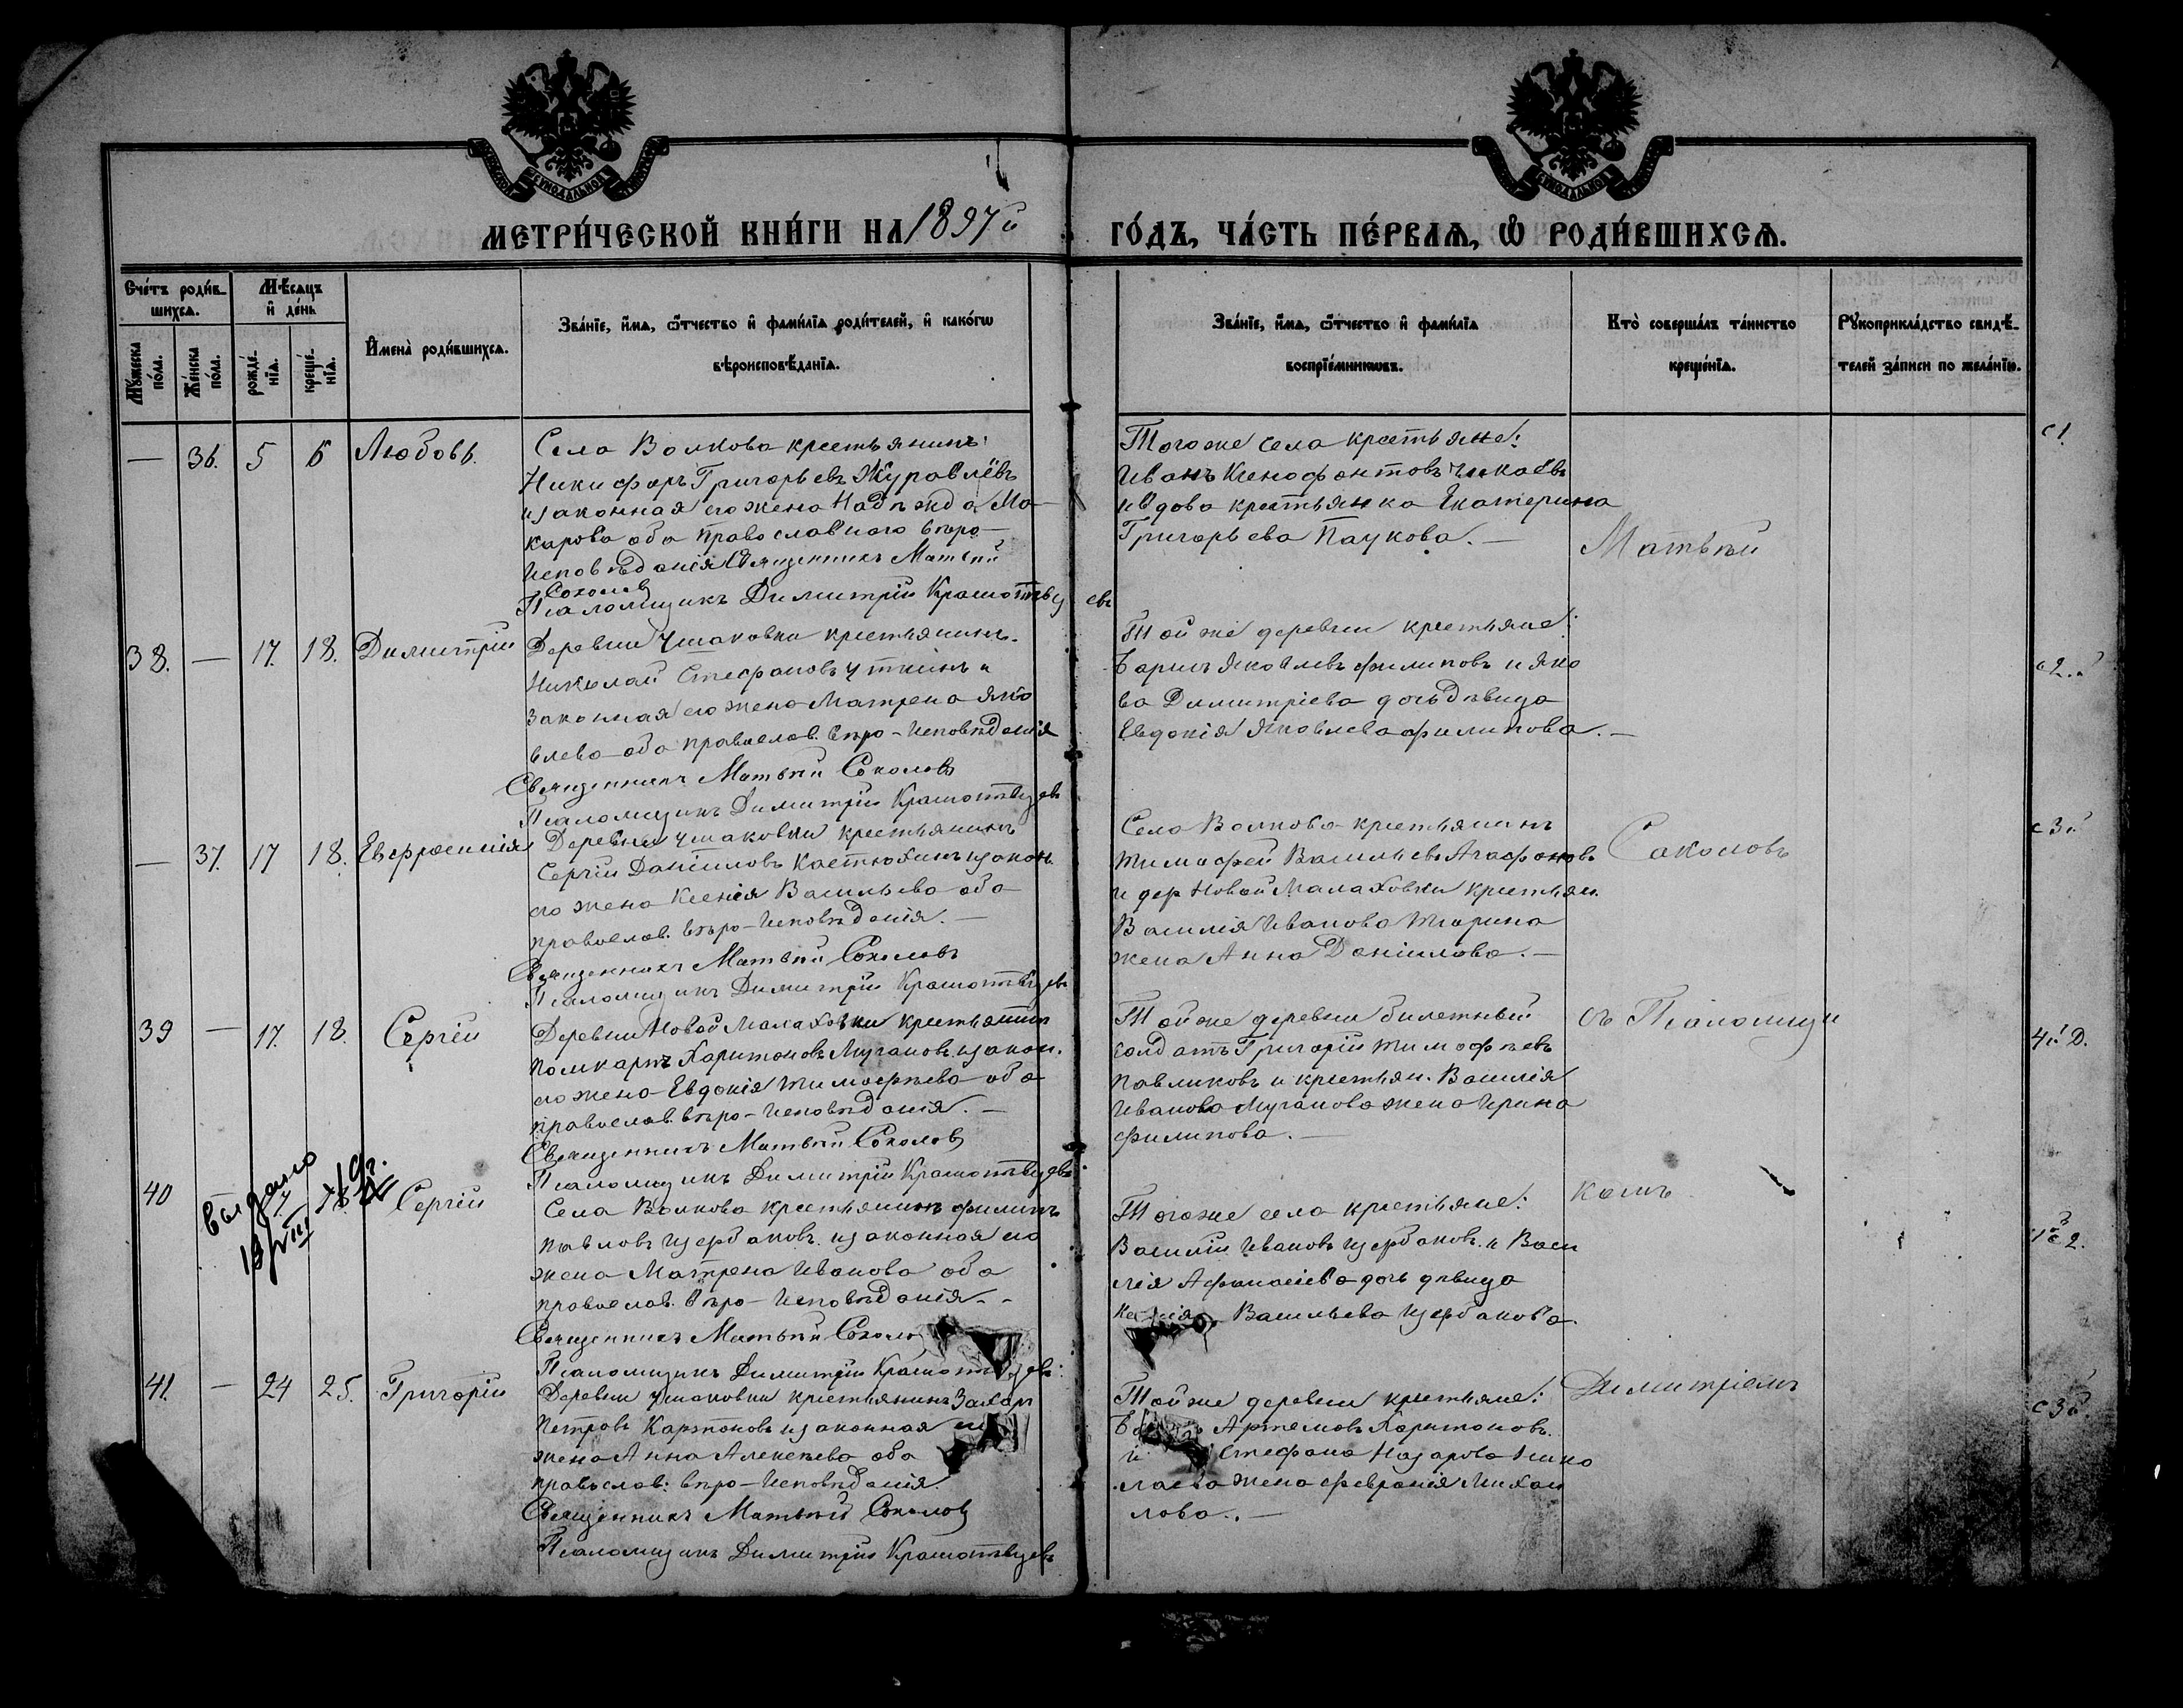 МЕТРИ́ЧЕСКОЙ КНИ́ГИ НА 1897й ГО́ДЪ, ЧА́СТЬ ПЕ́РВАѦ, Ѡ РОДИ́ВШИХСѦ.
Сче́тъ роди́в-
шихсѧ.
Мѣ́сѧцъ
и де́нь
Мꙋ́жеска по́ла.
Же́нска по́ла.
рожде́-
нїѧ.
креще́-
нїѧ.
И҆мена̀ роди́вшихсѧ.
Зва́нїе, и҆́мѧ, ѻ҆́тчество и҆ фами́лїѧ роди́телей, и҆ како́гѡ
вѣроисповѣ́данїѧ.
Зва́нїе, и҆́мѧ, ѻ҆́тчество и҆ фами́лїѧ
воспрїе́мникѡвъ.
Кто̀ соверша́лъ та́инство
креще́нїѧ.
Рꙋкоприкла́дство свидѣ́-
телей за́писи по жела́нїю.
— 36. 5 6 Любовь.
Села Волкова крестьянинъ
Никифоръ Григорьевъ Журавлёвъ
и законная его жена Надежда Ма-
карова оба православного вѣро-
исповѣданія Священникъ Матвѣй
Соколовъ
Псаломщикъ Димитрій
Тогоже села крестьяне:
Иванъ Ксенофонтовъ
и вдова крестьянка Екатерина
Григорьева Паукова.—
Матвѣй
с1.
38. — 17. 18. Димитрій
Деревни Ушаковки крестьянинъ
Николай Стефановъ Уткинъ и
законная его жена Матрена Яко
влева оба правослов. вѣро-исповѣданія
Священникъ Матвѣй Соколовъ
Псаломщикъ Димитрій
Той же деревни крестьяне:
Борисъ Яковлевъ Филиповъ и Яко
ва Димитріева дочь дѣвица
Евдокія Яковлева Филипова.—
— 37. 17 18. Евфросинія
Деревни Ушаковки крестьянинъ
Сергій Даніиловъ Костюхинъ и закон.
его жена Ксенія Васильева оба
правослов. вѣро-исповѣданія.—
Священникъ Матвѣй Соколовъ
Псаломщикъ Димитрій
Село Волкова крестьянинъ
Тимофей Васильевъ Агафоновъ
и дер Новой Малаховки крестьян.
Василія Иванова Тюрина
жена Анна Даніилова.—
Соколовъ
39 — 17. 18. Сергій
Деревни Новой Малаховки крестьянинъ
Поликарпъ Харитоновъ Мугановъ и закон.
его жена Евдокія Тимофѣева оба
правослов. вѣро-исповѣданія.—
Священникъ Матвѣй Соколовъ
Псаломщикъ Димитрій
Той же деревни билетный
солдатъ Григорій Тимофѣевъ
Павликовъ и крестьян. Василія
Иванова Муганова жена Ирина
Филипова.—
съ Псаломщи
40
выдано
Сергій
Села Волкова крестьянинъ Филипъ
Павловъ Щербаковъ и законная его
жена Матрена Иванова оба
правослов. вѣро-исповѣданія.-
Священникъ Матвѣй
Псаломщикъ Димитрій
Тогоже села крестьяне:
Василій Ивановъ Щербаковъ и Васи
лія Афанасіева дочь дѣвица
Васильева Щербакова.
комъ
41. — 24 25. Григорій
Деревни Ушаковки крестьянинъ Захаръ
Петровъ и законная
жена Анна Алексѣева оба
правослов: вѣро-исповѣданія
Священникъ Матвѣй Соколовъ
Псаломщикъ Димитрій
Той же деревни крестьяне:
Артемовъ Харитоновъ
и Стефана Назарова Нико
лаева жена Февронія Михаи
лова..—
Димитріемъ